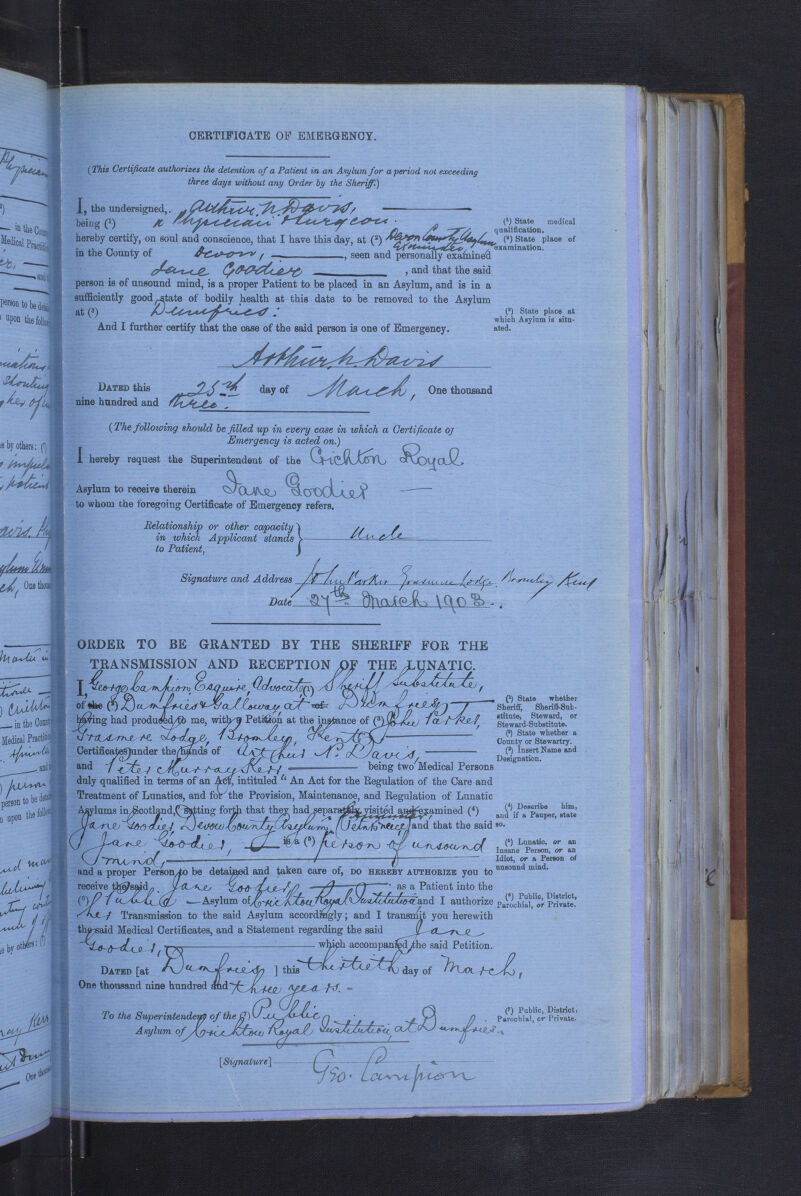 CERTIFICATE OF EMERGENCY.
(This Certificate authorizes the detention of a Patient in an Asylum for a period not exceeding
three days without any Order by the Sheriff.)
I, the undersigned, Arthur N. Davis,
being (¹) a Physician & Surgeon.
hereby certify, on soul and conscience, that I have this day, at (²) Devon County Asylum Exminster,
in the County of Devon, , seen and personally examined
Jane Goodier , and that the said
person is of unsound mind, is a proper Patient to be placed in an Asylum, and is in a
sufficiently good state of bodily health at this date to be removed to the Asylum
at (³) Dumfries.
And I further certify that the case of the said person is one of Emergency.
(¹) State medical
qualification.
(²) State place of
examination.
(³) State place at
which Asylum is situ-
ated.
Arthur. N. Davis
DATED this 25th day of March, One thousand
nine hundred and three.
(The following should be filled up in every case in which a Certificate of
Emergency is acted on.)
I hereby request the Superintendent of the Crichton Royal
Asylum to receive therein Jane Goodier
to whom the foregoing Certificate of Emergency refers.
Relationship or other capacity
in which Applicant stands } Uncle
to Patient,
Signature and Address John Parker Grasmere Lodge. Bromley Kent
Date 27th March 1903.
ORDER TO BE GRANTED BY THE SHERIFF FOR THE
TRANSMISSION AND RECEPTION OF THE LUNATIC.
I, George Campion, Esquire, Advocate (¹) Sheriff Substitute,
of the (²) Dumfries & Galloway at of Dumfries,
having had produced to me, with a Petition at the instance of (³) John Parker,
Grasmere Lodge, Bromley, Kent,
Certificates under the hands of Arthur N. Davis,
and Peter Murray Kerr being two Medical Persons
duly qualified in terms of an Act, intituled "An Act for the Regulation of the Care and
Treatment of Lunatics, and for the Provision, Maintenance, and Regulation of Lunatic
Asylums in Scotland," setting forth that they had separately visited and examined (⁴)
Jane Goodier, Devon County Asylum, Exminster, and that the said
Jane Goodier, is a (⁵) person of unsound
mind,
and a proper Person to be detained and taken care of, DO HEREBY AUTHORIZE you to
receive the said Jane Goodier as a Patient into the
(⁶) Public Asylum of Crichton Royal Institution and I authorize
her Transmission to the said Asylum accordingly; and I transmit you herewith
the said Medical Certificates, and a Statement regarding the said Jane
Goodier, which accompanied the said Petition.
DATED [at Dumfries ] this thirtieth day of March,
One thousand nine hundred and three years.
To the Superintendent of the (⁷) Public
Asylum of Crichton Royal Institution, at Dumfries.
[Signature] Geo. Campion
(¹) State whether
Sheriff, Sheriff-Sub-
stitute, Steward, or
Steward-Substitute.
(²) State whether a
County or Stewartry.
(³) Insert Name and
Designation.
(⁴) Describe him,
and if a Pauper, state
so.
(⁵) Lunatic, or an
Insane Person, or an
Idiot, or a Person of
unsound mind.
(⁶) Public, District,
Parochial, or Private.
(⁷) Public, District,
Parochial, or Private.